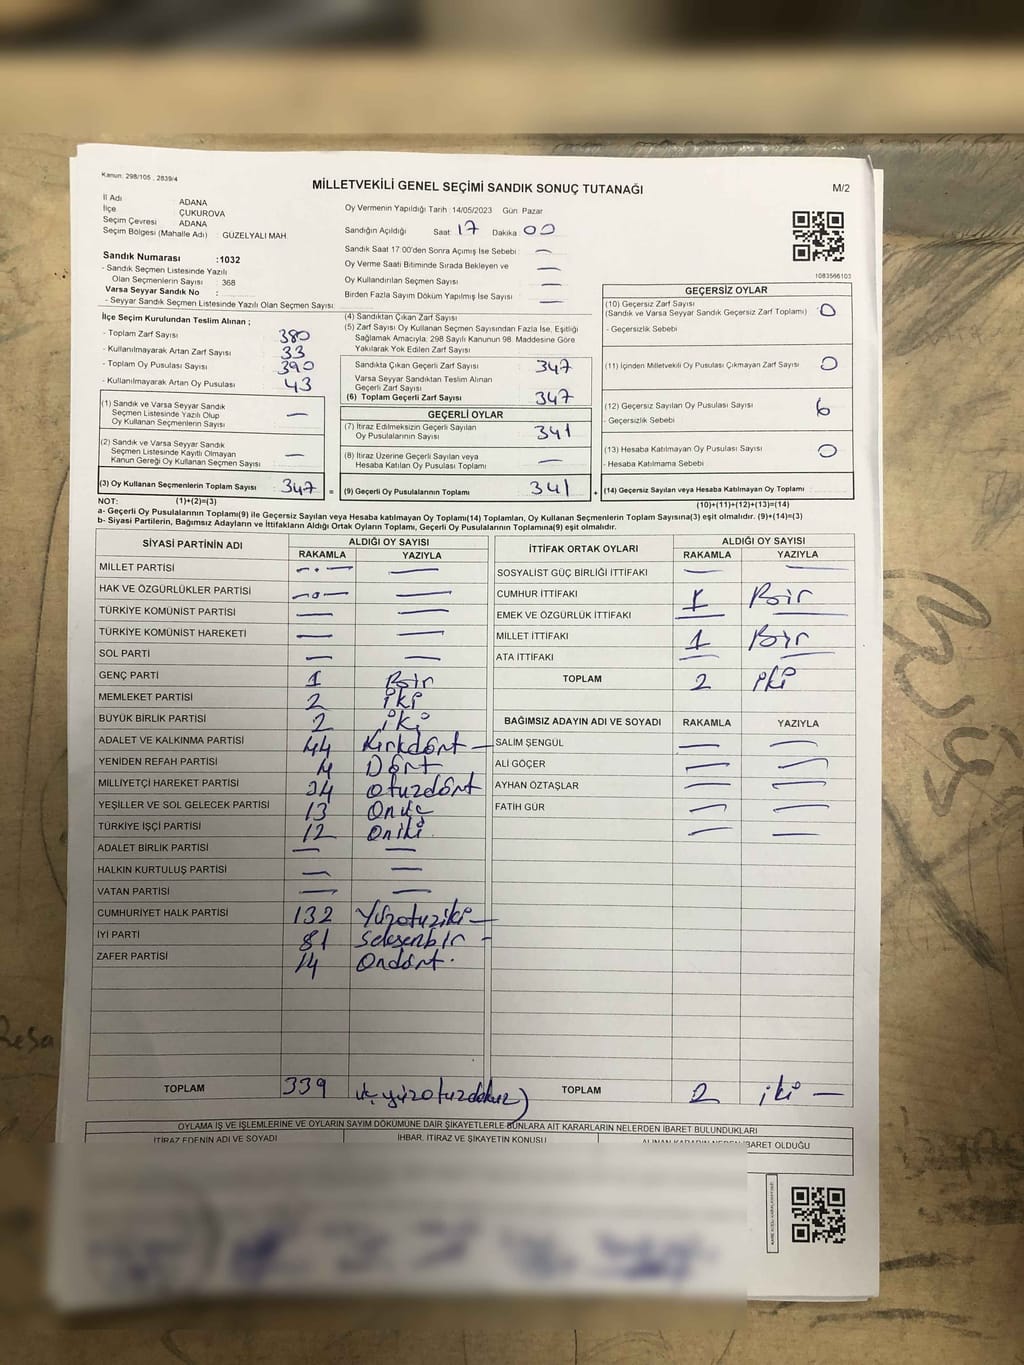 Kanun: 298/105 , 2839/4
MİLLETVEKİLİ GENEL SEÇİMİ SANDIK SONUÇ TUTANAĞI
M/2
İl Adı : ADANA
İlçe : ÇUKUROVA
Seçim Çevresi : ADANA
Seçim Bölgesi (Mahalle Adı) : GÜZELYALI MAH.
Sandık Numarası :1032
- Sandık Seçmen Listesinde Yazılı
Olan Seçmenlerin Sayısı : 368
Varsa Seyyar Sandık No :
- Seyyar Sandık Seçmen Listesinde Yazılı Olan Seçmen Sayısı:
Oy Vermenin Yapıldığı Tarih :14/05/2023 Gün Pazar
Sandığın Açıldığı Saat: 17 Dakika 00
Sandık Saat 17:00'den Sonra Açımış İse Sebebi : —
Oy Verme Saati Bitiminde Sırada Bekleyen ve
Oy Kullandırılan Seçmen Sayısı : —
Birden Fazla Sayım Döküm Yapılmış İse Sayısı : —
1083566103
İlçe Seçim Kurulundan Teslim Alınan ;
- Toplam Zarf Sayısı : 380
- Kullanılmayarak Artan Zarf Sayısı : 33
- Toplam Oy Pusulası Sayısı : 390
- Kullanılmayarak Artan Oy Pusulası : 43
(1) Sandık ve Varsa Seyyar Sandık
Seçmen Listesinde Yazılı Olup
Oy Kullanan Seçmenlerin Sayısı : —
(2) Sandık ve Varsa Seyyar Sandık
Seçmen Listesinde Kayıtlı Olmayan
Kanun Gereği Oy Kullanan Seçmen Sayısı : —
(3) Oy Kullanan Seçmenlerin Toplam Sayısı : 347 =
(4) Sandıktan Çıkan Zarf Sayısı
(5) Zarf Sayısı Oy Kullanan Seçmen Sayısından Fazla İse, Eşitliği
Sağlamak Amacıyla; 298 Sayılı Kanunun 98. Maddesine Göre
Yakılarak Yok Edilen Zarf Sayısı
Sandıkta Çıkan Geçerli Zarf Sayısı : 347
Varsa Seyyar Sandıktan Teslim Alınan
Geçerli Zarf Sayısı
(6) Toplam Geçerli Zarf Sayısı : 347
GEÇERLİ OYLAR
(7) İtiraz Edilmeksizin Geçerli Sayılan
Oy Pusulalarının Sayısı : 341
(8) İtiraz Üzerine Geçerli Sayılan veya
Hesaba Katılan Oy Pusulası Toplamı : —
(9) Geçerli Oy Pusulalarının Toplamı : 341 +
GEÇERSİZ OYLAR
(10) Geçersiz Zarf Sayısı
(Sandık ve Varsa Seyyar Sandık Geçersiz Zarf Toplamı) : 0
- Geçersizlik Sebebi
(11) İçinden Milletvekili Oy Pusulası Çıkmayan Zarf Sayısı : 0
(12) Geçersiz Sayılan Oy Pusulası Sayısı : 6
- Geçersizlik Sebebi
(13) Hesaba Katılmayan Oy Pusulası Sayısı : 0
- Hesaba Katılmama Sebebi
(14) Geçersiz Sayılan veya Hesaba Katılmayan Oy Toplamı :
NOT: (1)+(2)=(3) (10)+(11)+(12)+(13)=(14)
a- Geçerli Oy Pusulalarının Toplamı(9) ile Geçersiz Sayılan veya Hesaba katılmayan Oy Toplamı(14) Toplamları, Oy Kullanan Seçmenlerin Toplam Sayısına(3) eşit olmalıdır. (9)+(14)=(3)
b- Siyasi Partilerin, Bağımsız Adayların ve İttifakların Aldığı Ortak Oyların Toplamı, Geçerli Oy Pusulalarının Toplamına(9) eşit olmalıdır.
SİYASİ PARTİNİN ADI ALDIĞI OY SAYISI
RAKAMLA YAZIYLA
MİLLET PARTİSİ — —
HAK VE ÖZGÜRLÜKLER PARTİSİ — —
TÜRKİYE KOMÜNİST PARTİSİ — —
TÜRKİYE KOMÜNİST HAREKETİ — —
SOL PARTİ — —
GENÇ PARTİ 1 Bir
MEMLEKET PARTİSİ 2 iki
BÜYÜK BİRLİK PARTİSİ 2 iki
ADALET VE KALKINMA PARTİSİ 44 Kırkdört —
YENİDEN REFAH PARTİSİ 4 Dört
MİLLİYETÇİ HAREKET PARTİSİ 34 otuzdört
YEŞİLLER VE SOL GELECEK PARTİSİ 13 Onüç
TÜRKİYE İŞÇİ PARTİSİ 12 Oniki
ADALET BİRLİK PARTİSİ — —
HALKIN KURTULUŞ PARTİSİ — —
VATAN PARTİSİ — —
CUMHURİYET HALK PARTİSİ 132 Yüzotuziki —
İYİ PARTİ 81 Seksenbir —
ZAFER PARTİSİ 14 Ondört.
TOPLAM 339 üçyüzotuzdokuz)
İTTİFAK ORTAK OYLARI ALDIĞI OY SAYISI
RAKAMLA YAZIYLA
SOSYALİST GÜÇ BİRLİĞİ İTTİFAKI — —
CUMHUR İTTİFAKI 1 Bir
EMEK VE ÖZGÜRLÜK İTTİFAKI — —
MİLLET İTTİFAKI 1 Bir
ATA İTTİFAKI — —
TOPLAM 2 iki
BAĞIMSIZ ADAYIN ADI VE SOYADI RAKAMLA YAZIYLA
SALİM ŞENGÜL — —
ALİ GÖÇER — —
AYHAN ÖZTAŞLAR — —
FATİH GÜR — —
— —
TOPLAM 2 iki —
OYLAMA İŞ VE İŞLEMLERİNE VE OYLARIN SAYIM DÖKÜMÜNE DAİR ŞİKAYETLERLE BUNLARA AİT KARARLARIN NELERDEN İBARET BULUNDUKLARI
İTİRAZ EDENİN ADI VE SOYADI İHBAR, İTİRAZ VE ŞİKAYETİN KONUSU ALINAN KARARIN NEDEN İBARET OLDUĞU